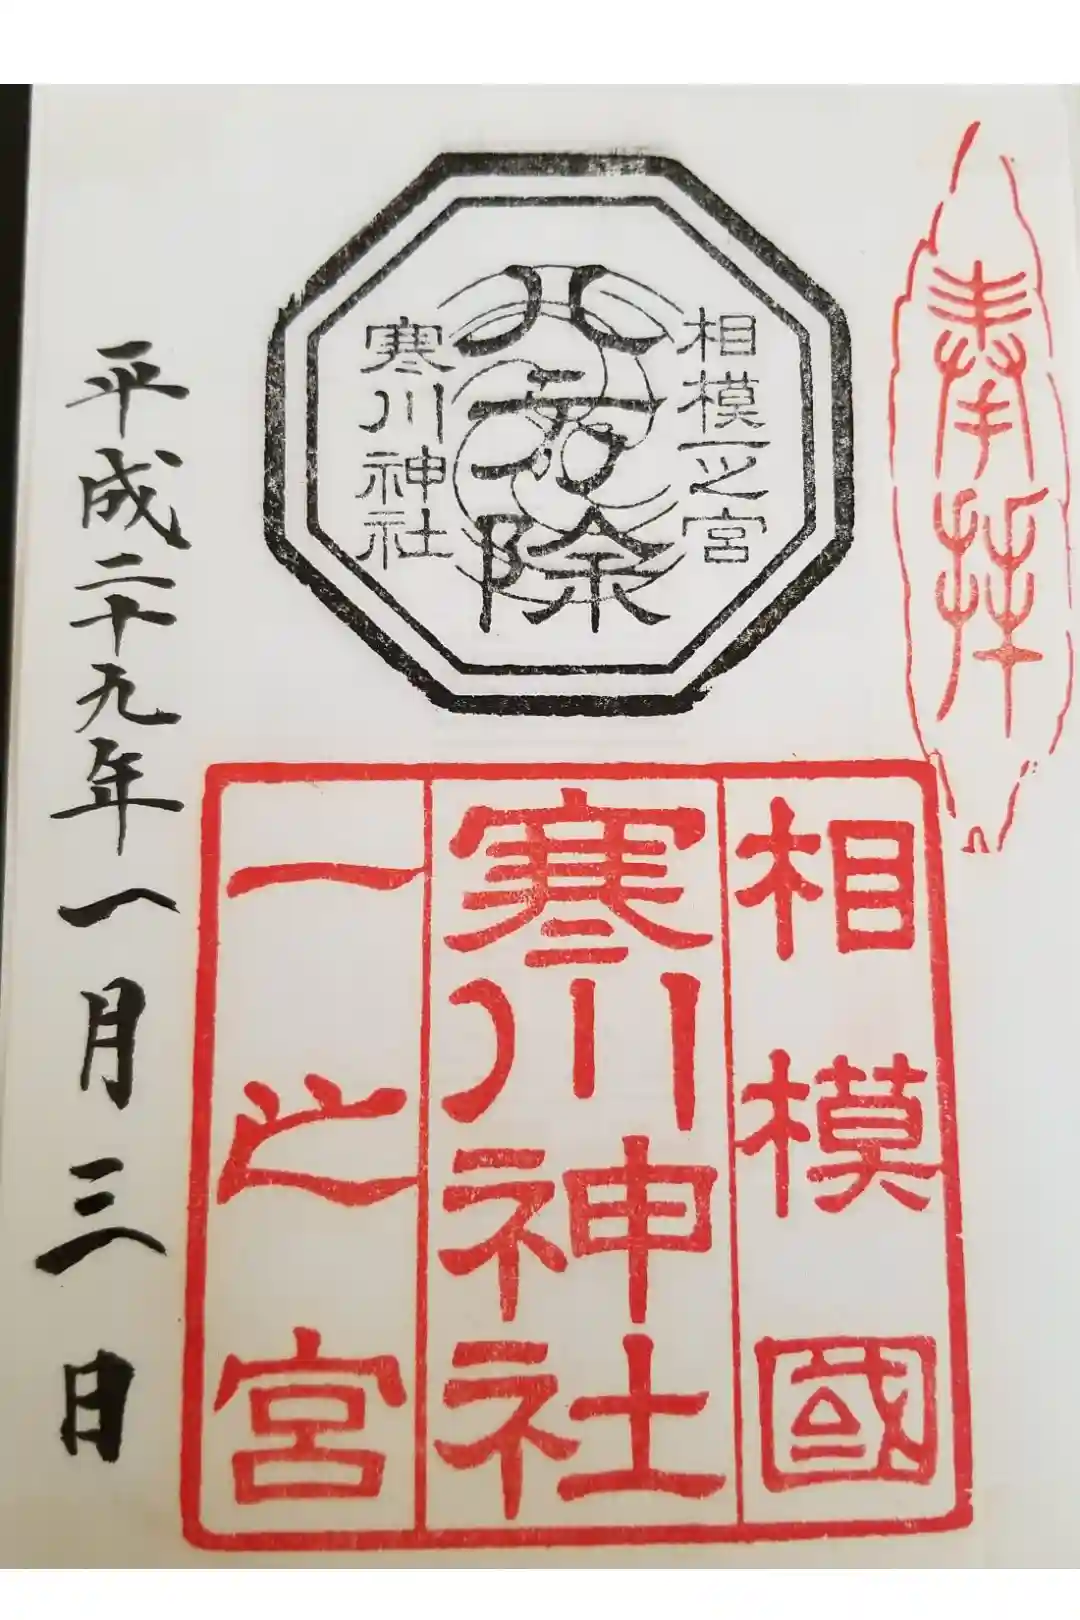 奉拝
相模一之宮
八方除
寒川神社
相模國
寒川神社
一之宮
平成二十九年一月三日